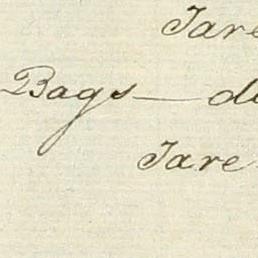 Tare
Bags — do
Tare